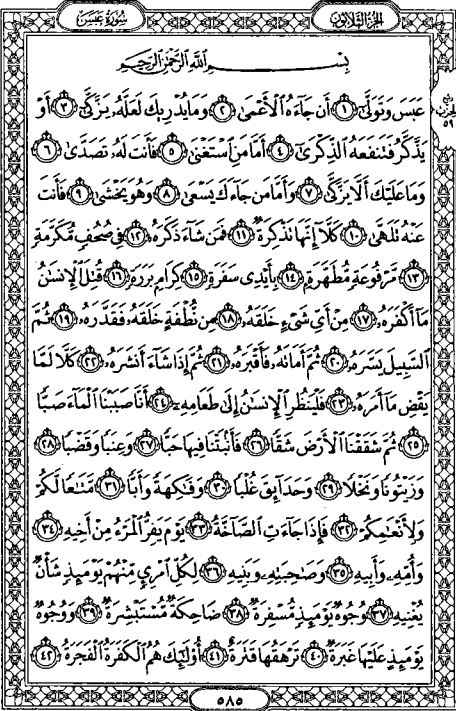 الجزء الثلاثون
سورة عبس
ربع
الحزب
٥٩
بِسْمِ اللَّهِ الرَّحْمَٰنِ الرَّحِيمِ
عَبَسَ وَتَوَلَّىٰ ﴿١﴾ أَن جَاءَهُ الْأَعْمَىٰ ﴿٢﴾ وَمَا يُدْرِيكَ لَعَلَّهُ يَزَّكَّىٰ ﴿٣﴾ أَوْ
يَذَّكَّرُ فَتَنفَعَهُ الذِّكْرَىٰ ﴿٤﴾ أَمَّا مَنِ اسْتَغْنَىٰ ﴿٥﴾ فَأَنتَ لَهُ تَصَدَّىٰ ﴿٦﴾
وَمَا عَلَيْكَ أَلَّا يَزَّكَّىٰ ﴿٧﴾ وَأَمَّا مَن جَاءَكَ يَسْعَىٰ ﴿٨﴾ وَهُوَ يَخْشَىٰ ﴿٩﴾ فَأَنتَ
عَنْهُ تَلَهَّىٰ ﴿١٠﴾ كَلَّا إِنَّهَا تَذْكِرَةٌ ﴿١١﴾ فَمَن شَاءَ ذَكَرَهُ ﴿١٢﴾ فِي صُحُفٍ مُّكَرَّمَةٍ
﴿١٣﴾ مَّرْفُوعَةٍ مُّطَهَّرَةٍ ﴿١٤﴾ بِأَيْدِي سَفَرَةٍ ﴿١٥﴾ كِرَامٍ بَرَرَةٍ ﴿١٦﴾ قُتِلَ الْإِنسَانُ
مَا أَكْفَرَهُ ﴿١٧﴾ مِنْ أَيِّ شَيْءٍ خَلَقَهُ ﴿١٨﴾ مِن نُّطْفَةٍ خَلَقَهُ فَقَدَّرَهُ ﴿١٩﴾ ثُمَّ
السَّبِيلَ يَسَّرَهُ ﴿٢٠﴾ ثُمَّ أَمَاتَهُ فَأَقْبَرَهُ ﴿٢١﴾ ثُمَّ إِذَا شَاءَ أَنشَرَهُ ﴿٢٢﴾ كَلَّا لَمَّا
يَقْضِ مَا أَمَرَهُ ﴿٢٣﴾ فَلْيَنظُرِ الْإِنسَانُ إِلَىٰ طَعَامِهِ ﴿٢٤﴾ أَنَّا صَبَبْنَا الْمَاءَ صَبًّا
﴿٢٥﴾ ثُمَّ شَقَقْنَا الْأَرْضَ شَقًّا ﴿٢٦﴾ فَأَنبَتْنَا فِيهَا حَبًّا ﴿٢٧﴾ وَعِنَبًا وَقَضْبًا ﴿٢٨﴾
وَزَيْتُونًا وَنَخْلًا ﴿٢٩﴾ وَحَدَائِقَ غُلْبًا ﴿٣٠﴾ وَفَاكِهَةً وَأَبًّا ﴿٣١﴾ مَّتَاعًا لَّكُمْ
وَلِأَنْعَامِكُمْ ﴿٣٢﴾ فَإِذَا جَاءَتِ الصَّاخَّةُ ﴿٣٣﴾ يَوْمَ يَفِرُّ الْمَرْءُ مِنْ أَخِيهِ ﴿٣٤﴾
وَأُمِّهِ وَأَبِيهِ ﴿٣٥﴾ وَصَاحِبَتِهِ وَبَنِيهِ ﴿٣٦﴾ لِكُلِّ امْرِئٍ مِّنْهُمْ يَوْمَئِذٍ شَأْنٌ
يُغْنِيهِ ﴿٣٧﴾ وُجُوهٌ يَوْمَئِذٍ مُّسْفِرَةٌ ﴿٣٨﴾ ضَاحِكَةٌ مُّسْتَبْشِرَةٌ ﴿٣٩﴾ وَوُجُوهٌ
يَوْمَئِذٍ عَلَيْهَا غَبَرَةٌ ﴿٤٠﴾ تَرْهَقُهَا قَتَرَةٌ ﴿٤١﴾ أُولَٰئِكَ هُمُ الْكَفَرَةُ الْفَجَرَةُ ﴿٤٢﴾
٥٨٥